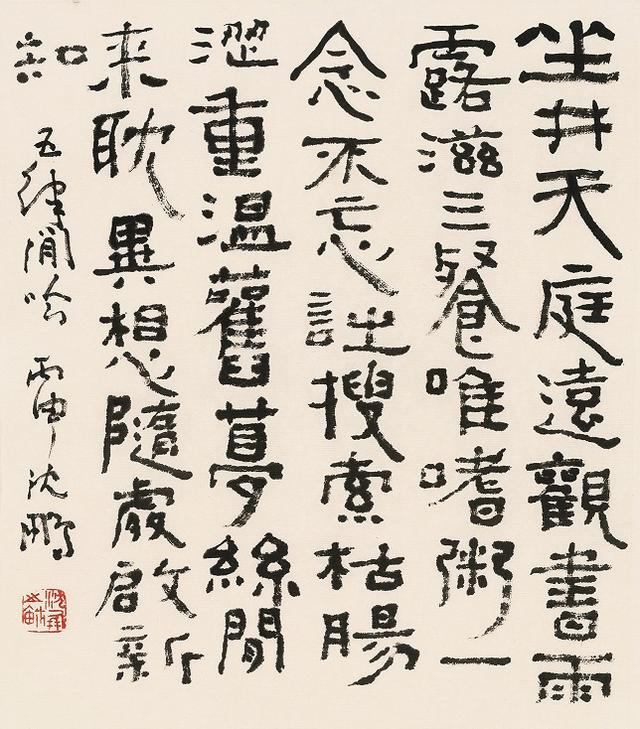 坐井天庭遠觀書雨
露滋三餐唯嗜粥一
念不忘詩搜索枯腸
澀重溫舊夢絲閒
来耽異想隨處啟新
知 五律閒吟 丙申 沈鵬